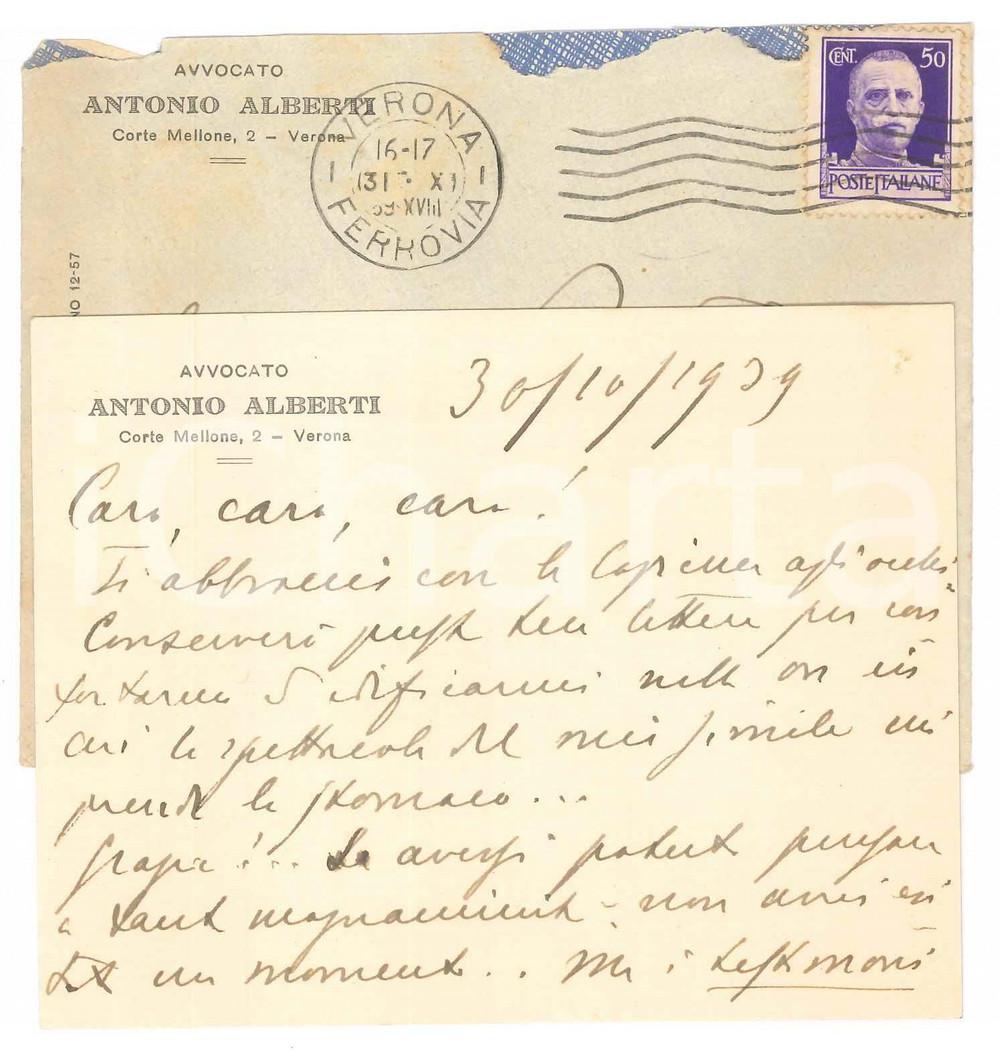 AVVOCATO
ANTONIO ALBERTI
Corte Mellone, 2 – Verona
VERONA
16-17
39-XVIII
FERROVIA
CENT. 50
POSTE ITALIANE
NO 12-57
AVVOCATO
ANTONIO ALBERTI
Corte Mellone, 2 – Verona
30/10/1939
Caro, caro, caro!
Ti abbraccio con le lagrime agli occhi.
Conserverò questa tua lettera per con
fortarmi e edificarmi nelle ore in
cui lo spettacolo del mio simile mi
prende lo stomaco...
Grazie!... Se avessi potuto pensare
a tanta magnanimità - non avrei esi
tato un momento.. Ma i testimoni
iCharta